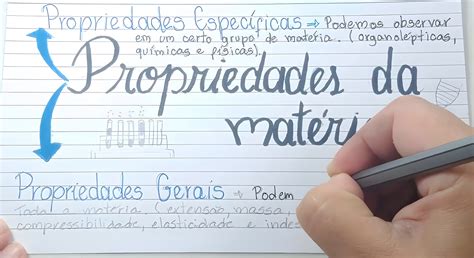 Propriedades Específicas ⇒ Podemos observar
em um certo grupo de matéria. (organolépticas,
químicas e físicas).
Propriedades da
matéri
Propriedades Gerais → Podem
Toda a matéria. (extensão, massa,
compressibilidade, elasticidade e indes